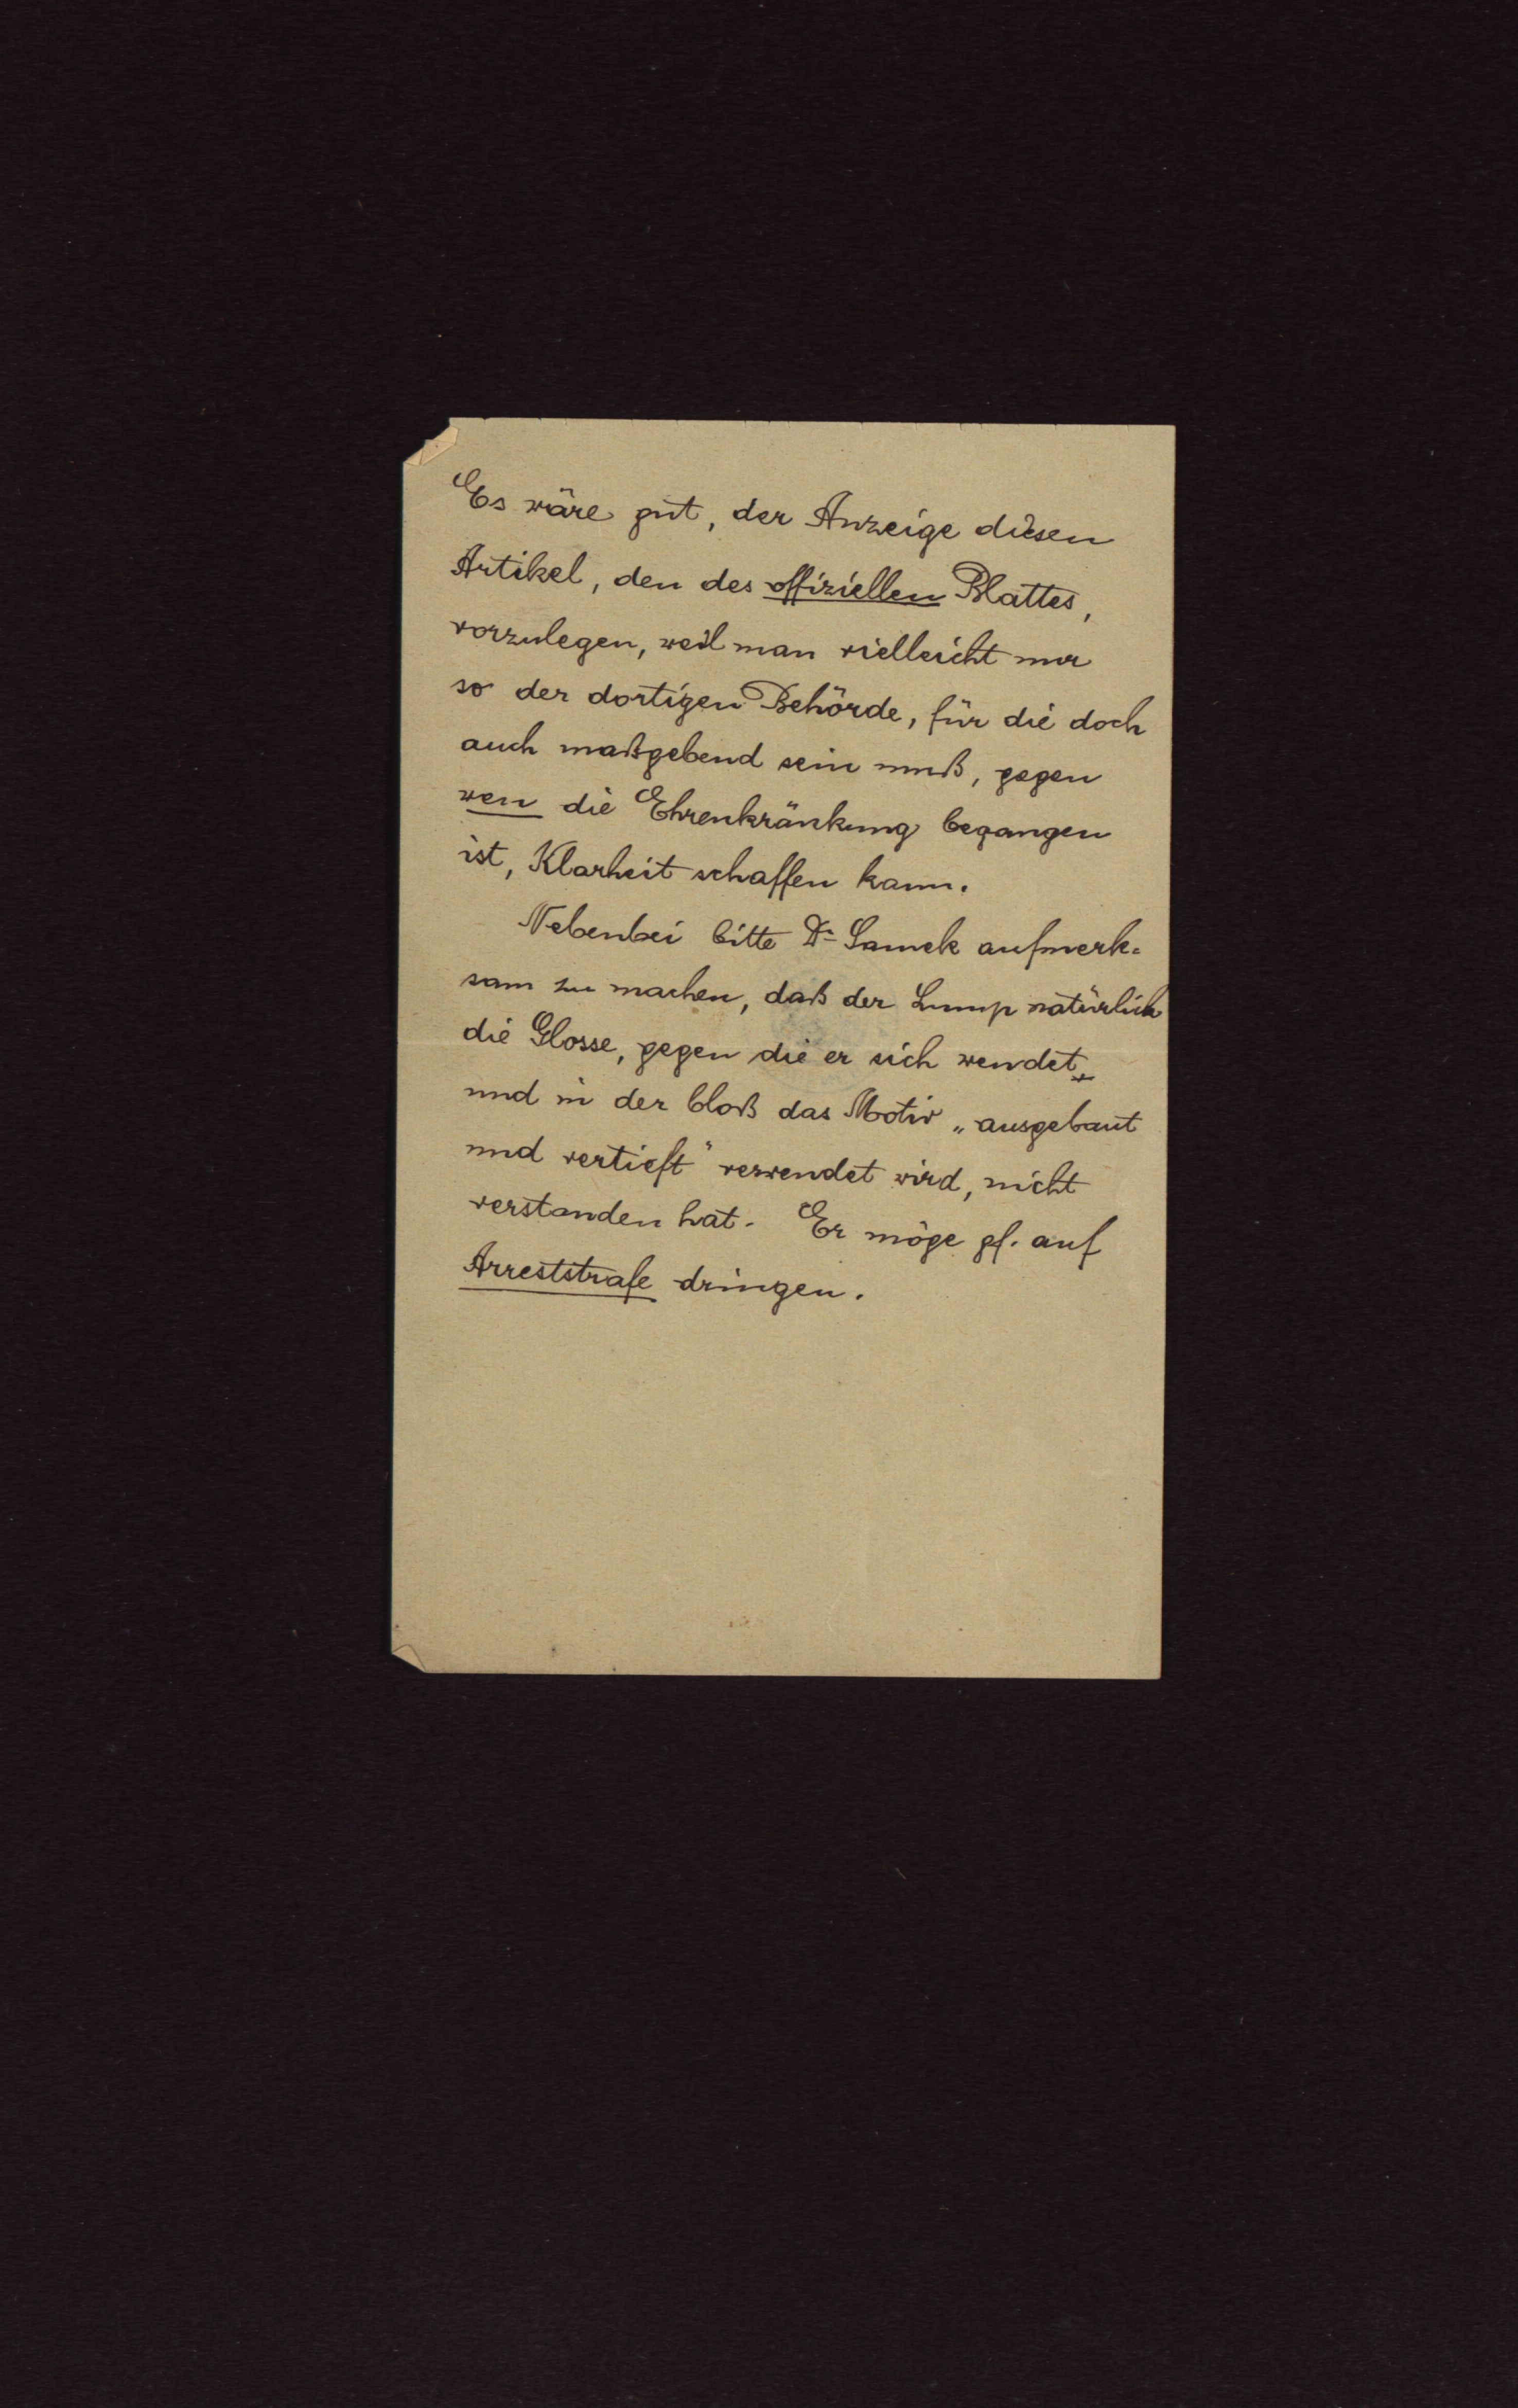 Es wäre gut, der Anzeige diesen
Artikel, den des offiziellen Blattes,
vorzulegen, weil man vielleicht nur
so der dortigen Behörde, für die doch
auch maßgebend sein muß, gegen
wen die Ehrenkränkung begangen
ist, Klarheit schaffen kann.
Nebenbei bitte Dr Samek aufmerk=
sam zu machen, daß der Lump natürlich
die Glosse, gegen die er sich wendet
und in der bloß das Motiv „ausgebaut
und vertieft" verwendet wird, nicht
verstanden hat. Er möge gf. auf
Arreststrafe dringen.